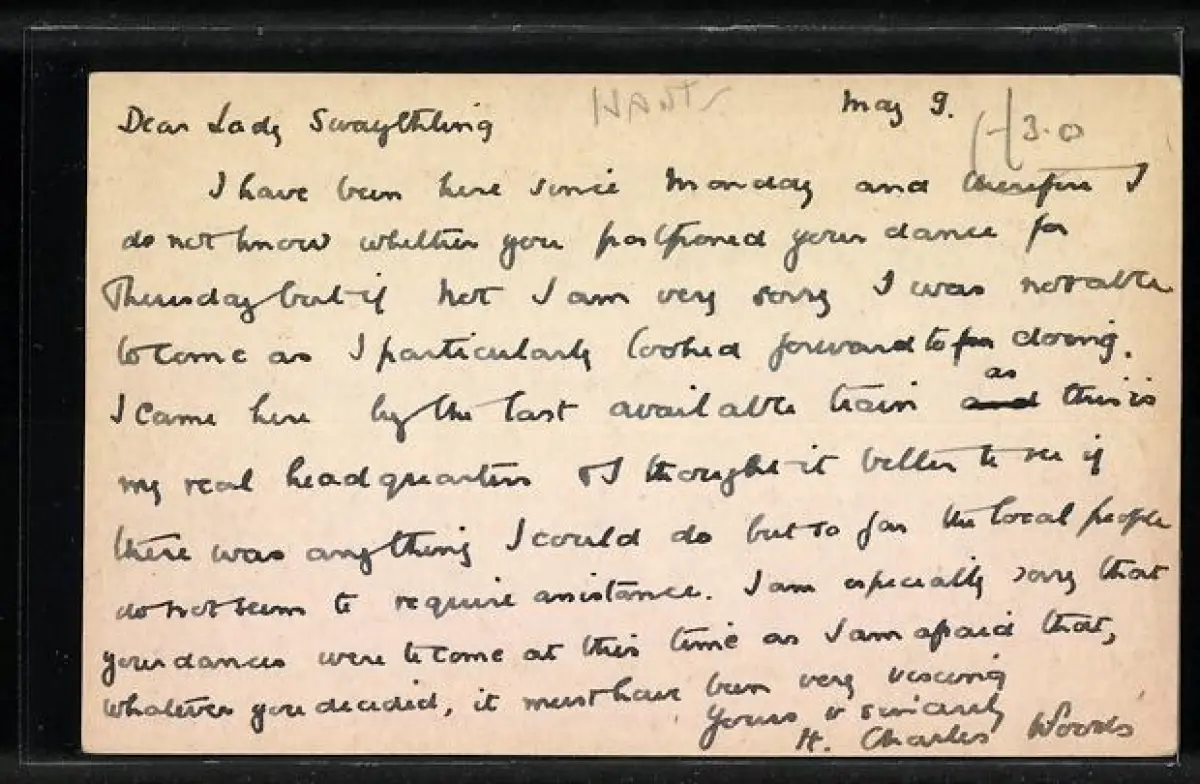 HANTS
May 9.
3.0
Dear Lady Swaythling
I have been here since Monday and therefore I
do not know whether you postponed your dance for
Thursday but if not I am very sorry I was not able
to come as I particularly looked forward to so doing.
I came here by the last available train as this is
my real headquarters & I thought it better to see if
there was anything I could do but so far the local people
do not seem to require assistance. I am especially sorry that
your dances were to come at this time as I am afraid that,
whatever you decided, it must have been very vexing
Yours v sincerely
H. Charles Woods